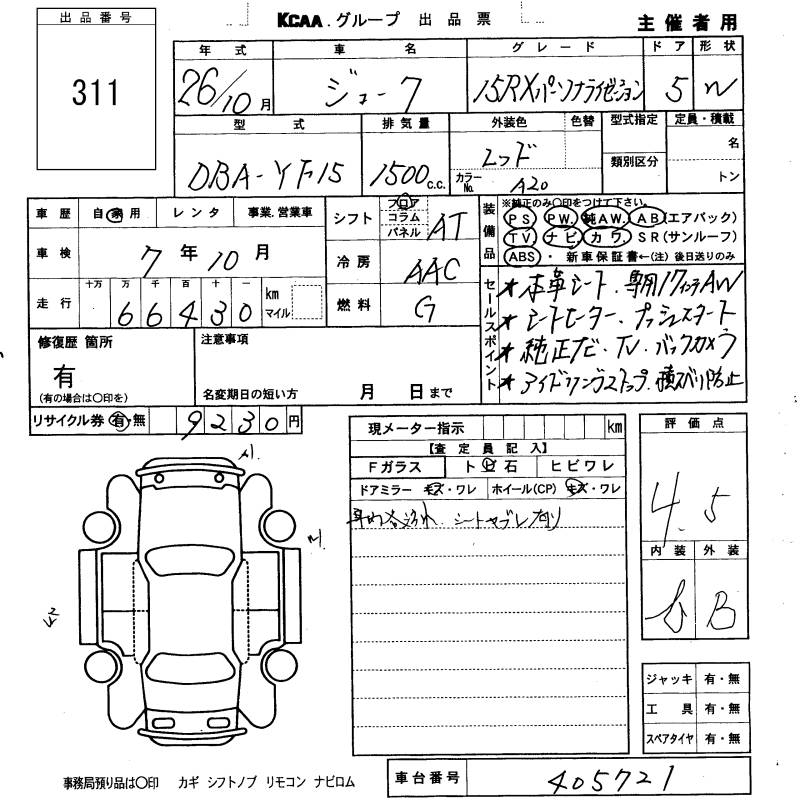 出品番号
KCAA.グループ 出品票
主催者用
311
年式 車名 グレード ドア 形状
26/10月 ジューク 15RXパーソナライゼーション 5 W
型式 排気量 外装色 色替 型式指定 定員・積載
名
DBA-YF15 1500c.c. レッド 類別区分
カラーNo. A20 トン
車歴 自家用 レンタ 事業.営業車
シフト フロア コラム パネル AT
装備品 ※純正のみ〇印をつけて下さい。
PS PW. 純AW. AB(エアバック)
TV. ナビ. カワ. SR(サンルーフ)
ABS ・新車保証書←(注)後日送りのみ
車検 7年10月
冷房 AAC
走行 十万 万 千 百 十 一 km マイル
66430
燃料 G
セールスポイント
★本革シート.専用17インチAW
★シートヒーター.プッシュスタート
★純正ナビ.TV.バックカメラ
★アイドリングストップ.横スベリ防止
修復歴 箇所 注意事項
有
(有の場合は〇印を) 名変期日の短い方 月 日まで
リサイクル券 有・無 9230円
現メーター指示 km
【査定員記入】
Fガラス ト ビ 石 ヒビワレ
ドアミラー キズ・ワレ ホイール(CP) キズ・ワレ
シートヤブレ有り
評価点
4.5
内装 外装
B
ジャッキ 有・無
工具 有・無
スペアタイヤ 有・無
事務局預り品は〇印 カギ シフトノブ リモコン ナビロム
車台番号 405721